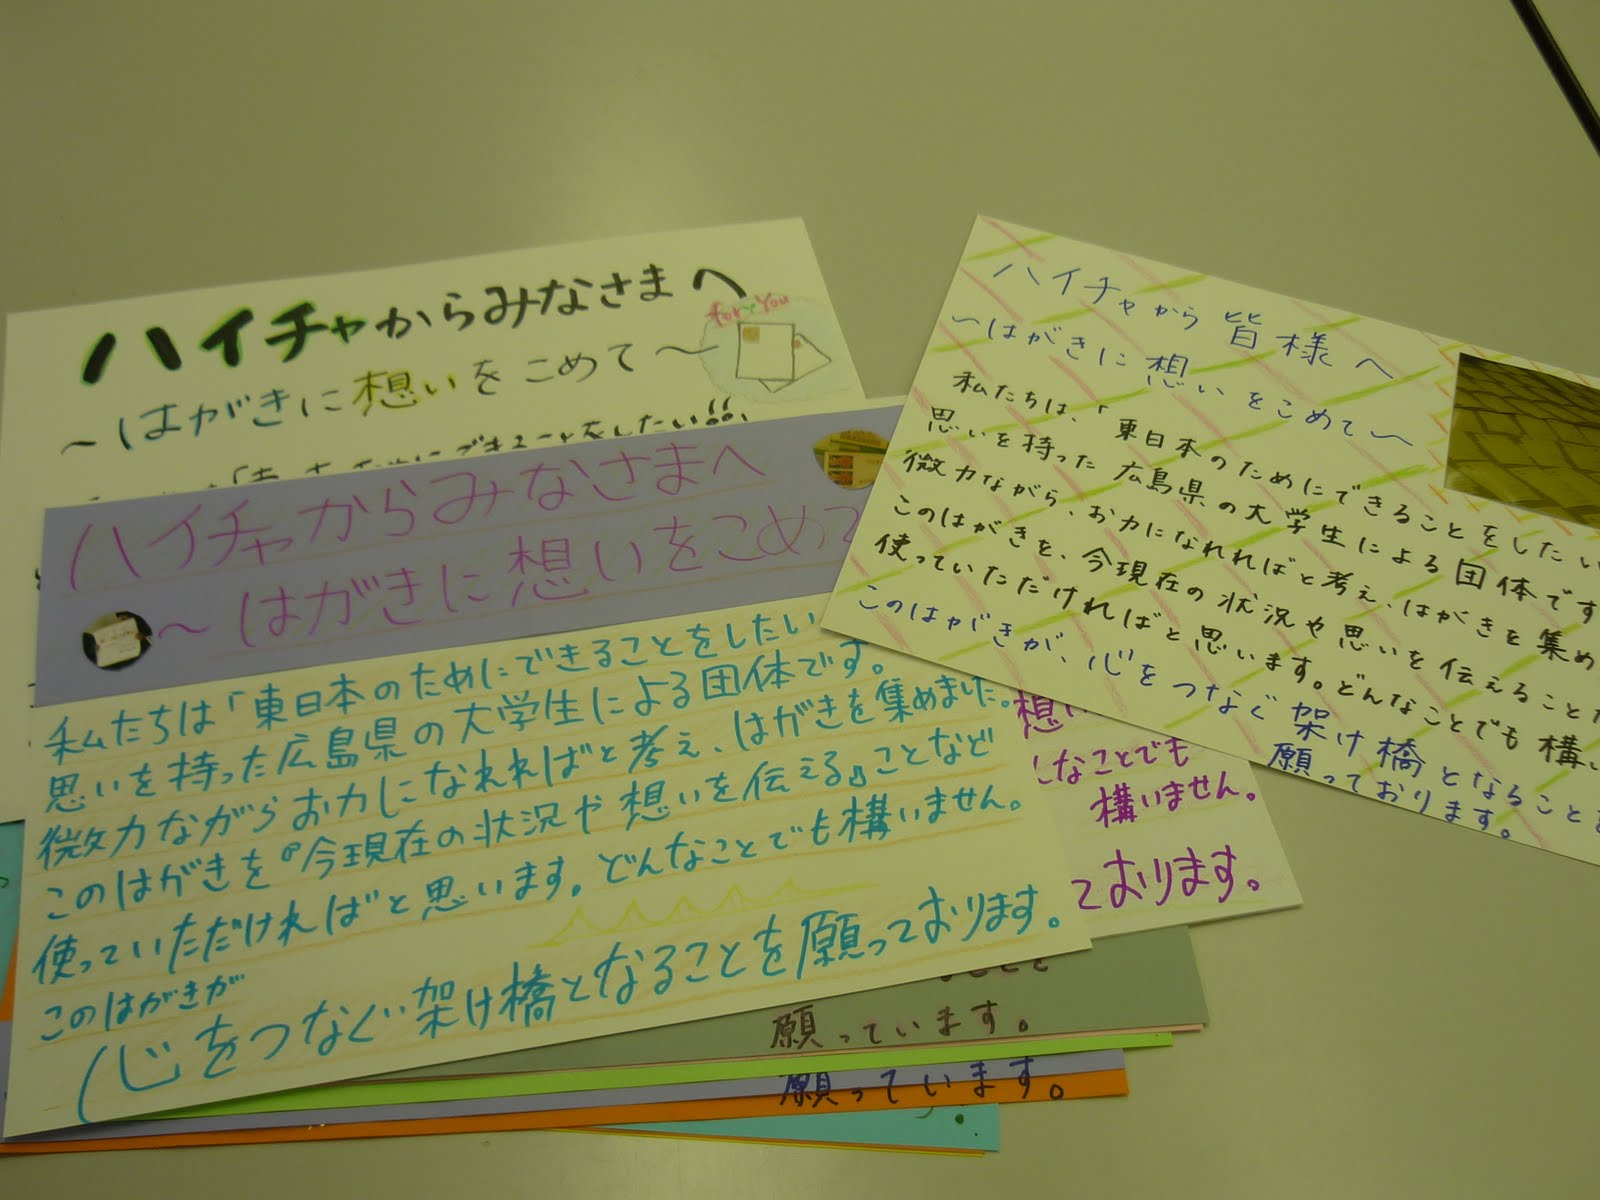 ハイチャからみなさまへ
for You
～はがきに想いをこめて～
できることをしたい!!
ハイチャからみなさまへ
～はがきに想いをこめて
私たちは「東日本のためにできることをしたい
思いを持った広島県の大学生による団体です。
微力ながらお力になれればと考え、はがきを集めました。
このはがきを『今現在の状況や想いを伝える』ことなど
使っていただければと思います。どんなことでも構いません。
このはがきが
心をつなぐ架け橋となることを願っております。
ハイチャから皆様へ
～はがきに想いをこめて～
私たちは、「東日本のためにできることをしたい
思いを持った広島県の大学生による団体です
微力ながら、お力になれればと考え、はがきを集め
このはがきを、今現在の状況や思いを伝えること
使っていただければと思います。どんなことでも構い
このはがきが、心をつなぐ架け橋となることを
願っております。
想い
なことでも
構いません。
ております。
ことを
願っています。
願っています。